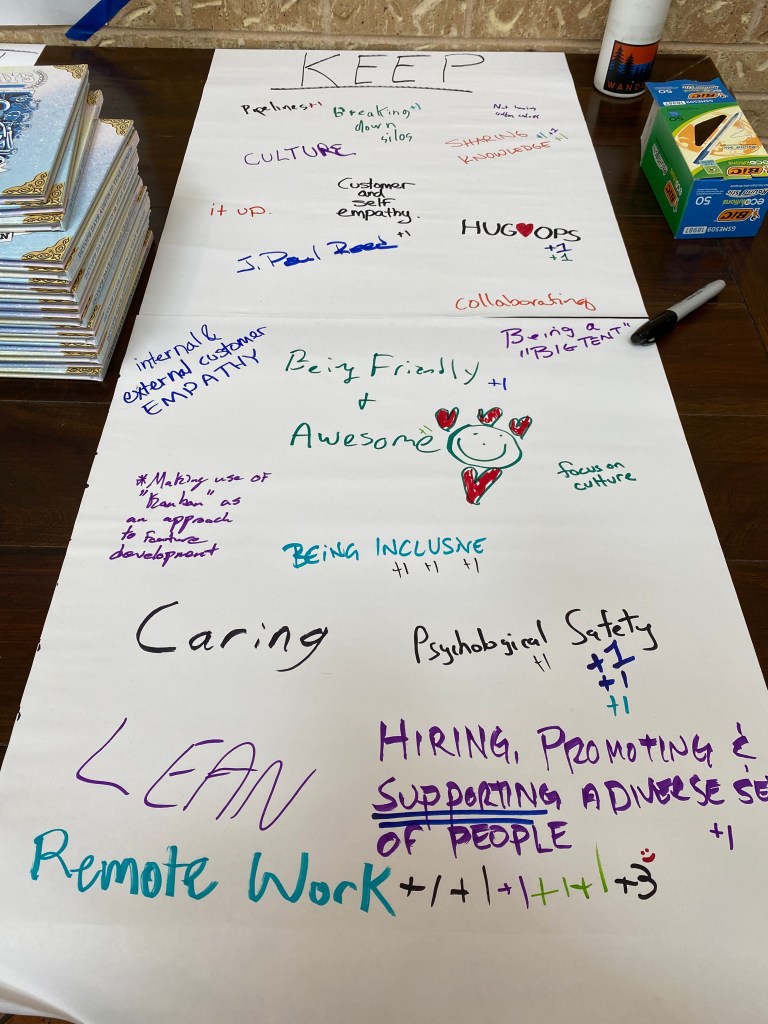 KEEP
Pipelines +1
Breaking +1
down
silos
SHARING +1 +2
KNOWLEDGE +1
CULTURE
Customer
and
self
empathy.
+1
it up.
HUG♥OPS
+1
+1
J. Paul Reed
collaborating
internal &
external customer
EMPATHY
Being a
"BIG TENT"
Being Friendly +1
+
Awesome +1
focus on
culture
*Making use of
"Kanban" as
an approach
to feature
development
BEING INCLUSIVE
+1 +1 +1
Caring
Psychological Safety
+1 +1
+1
+1
LEAN
HIRING, PROMOTING &
SUPPORTING A DIVERSE SE
OF PEOPLE +1
Remote Work +1 +1 +1 +1 +1 +3
WAND
BIC
ecolutions
50
BIC
GSMES09 19987